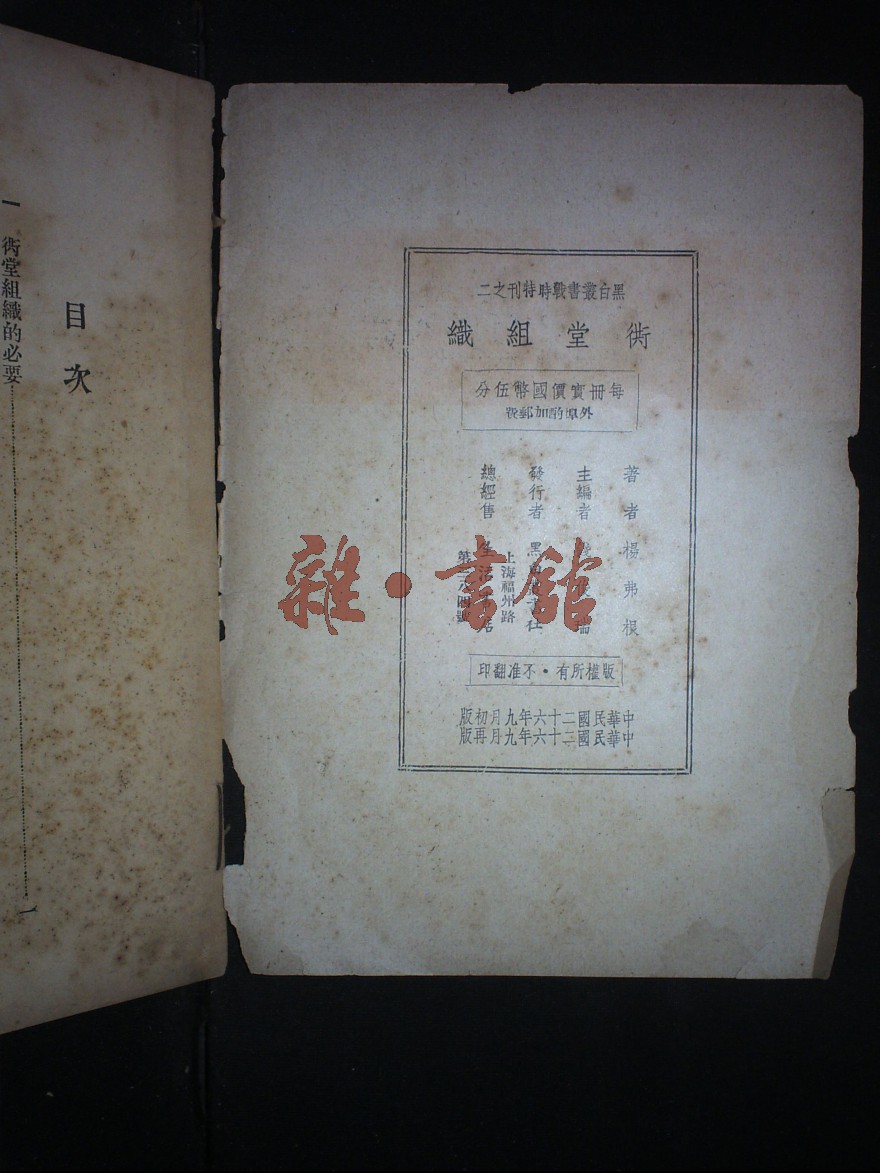 黑白叢書戰時特刊之二
衖堂組織
每冊實價國幣伍分
外埠酌加郵費
著者 楊弗根
主編者
發行者 黑
總經售 生活
上海福州路
第三
版權所有·不准翻印
中華民國二十六年九月初版
中華民國二十六年九月再版
目次
一 衖堂組織的必要……一
雜·書館